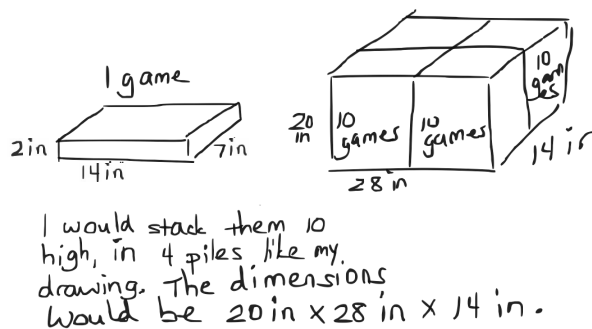 1 game
2in
14in
7in
20
in
10
games
10
games
10
gam
es
14 in
28 in
I would stack them 10
high, in 4 piles like my
drawing. The dimensions
would be 20 in x 28 in x 14 in.